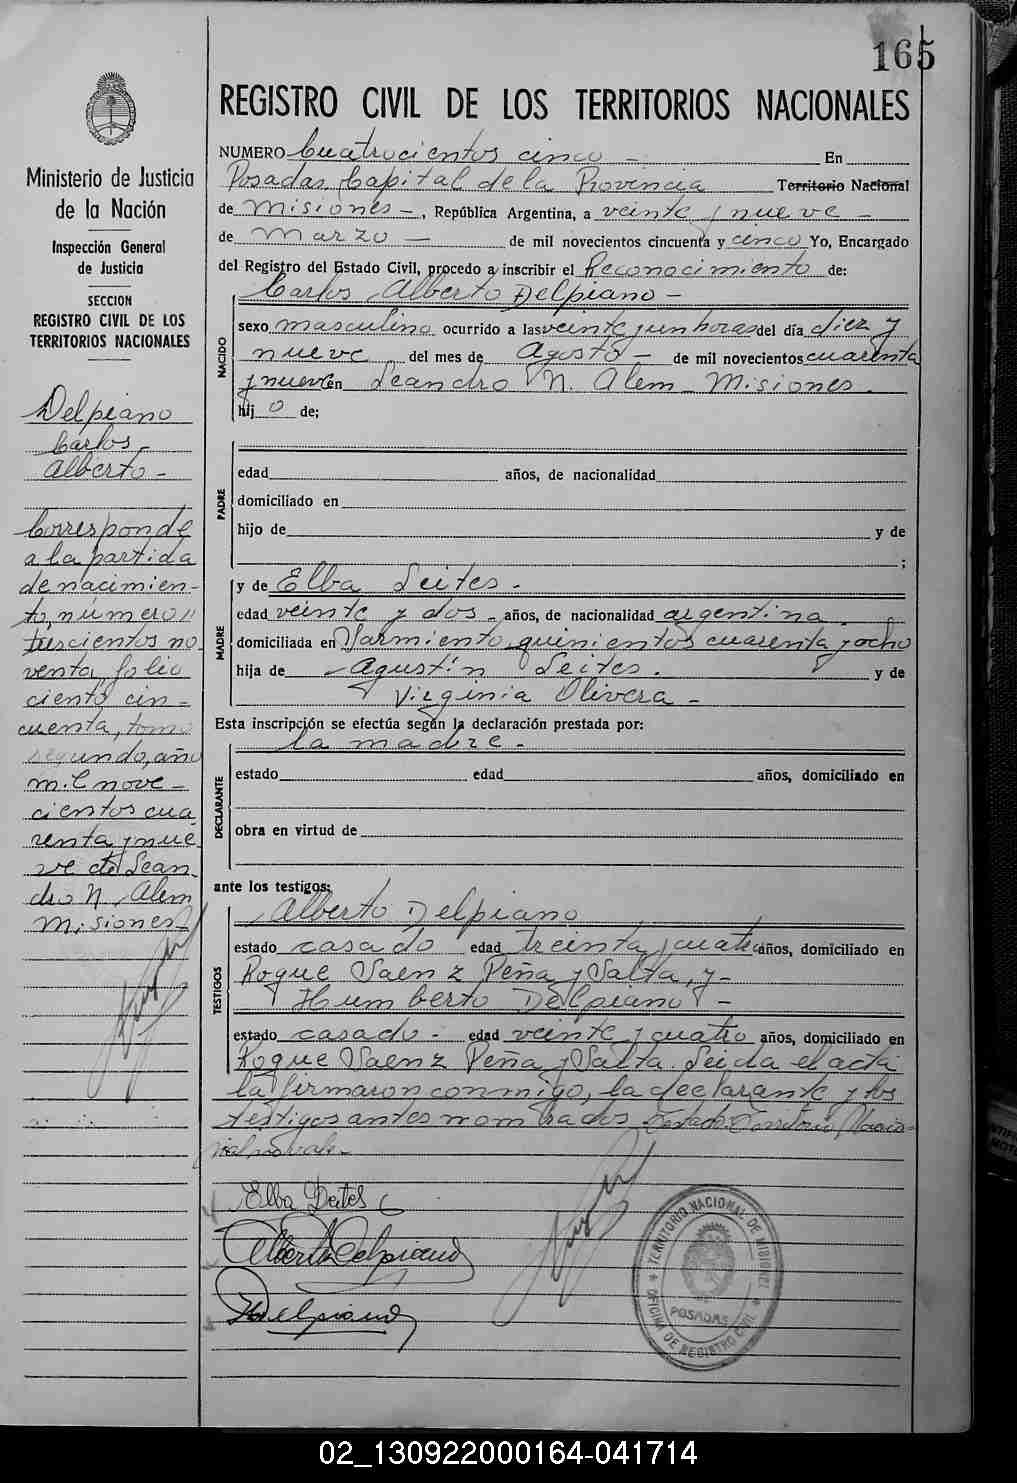 165
Ministerio de Justicia
de la Nación
Inspección General
de Justicia
SECCION
REGISTRO CIVIL DE LOS
TERRITORIOS NACIONALES
Delpiano
Carlos
Alberto -
Corresponde
a la partida
de nacimien-
to, número
trescientos no
venta, folio
ciento cin-
cuenta, tomo
segundo, año
mil nove-
cientos cua
renta y nue
ve de Lean
dro N. Alem
Misiones -
REGISTRO CIVIL DE LOS TERRITORIOS NACIONALES
NUMERO Cuatrocientos cinco - En
Posadas, Capital de la Provincia Territorio Nacional
de Misiones -, República Argentina, a veinte y nueve -
de Marzo - de mil novecientos cincuenta y cinco Yo, Encargado
del Registro del Estado Civil, procedo a inscribir el Reconocimiento de:
Carlos Alberto Delpiano -
NACIDO
sexo masculino ocurrido a las veinte y un horas del día diez y
nueve del mes de Agosto - de mil novecientos cuarenta
y nueve en Leandro N. Alem - Misiones.
hijo de;
PADRE
edad años, de nacionalidad
domiciliado en
hijo de y de
;
MADRE
y de Elba Leites -
edad veinte y dos - años, de nacionalidad argentina
domiciliada en Sarmiento quinientos cuarenta y ocho
hija de Agustín Leites. y de
Virginia Olivera -
Esta inscripción se efectúa según la declaración prestada por:
la madre -
DECLARANTE
estado edad años, domiciliado en
obra en virtud de
ante los testigos:
Alberto Delpiano
TESTIGOS
estado casado edad treinta y cuatro años, domiciliado en
Roque Saenz Peña y Salta, y -
Humberto Delpiano -
estado casado - edad veinte y cuatro años, domiciliado en
Roque Saenz Peña y Salta. Leida el acta
la firmaron conmigo, la declarante y los
testigos antes nombrados Testado: Territorio Nacio-
nal no vale -
Elba Leites
Alberto Delpiano
H Delpiano
TERRITORIO NACIONAL DE MISIONES
POSADAS
OFICINA DE REGISTRO CIVIL
02_130922000164-041714